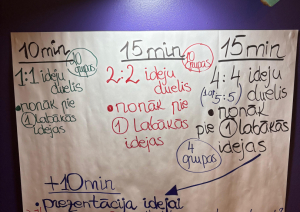 10 min
20 grupas
1:1 ideju duelis
• nonāk pie
1 labākās
idejas
15 min
10 grupas
2:2 ideju
duelis
• nonāk pie
1 labākās
idejas
15 min
4:4 ideju
(1 gr. 5:5) duelis
• nonāk
pie 1 labākās
idejas
4 grupas
+10 min
• prezentācija idejai